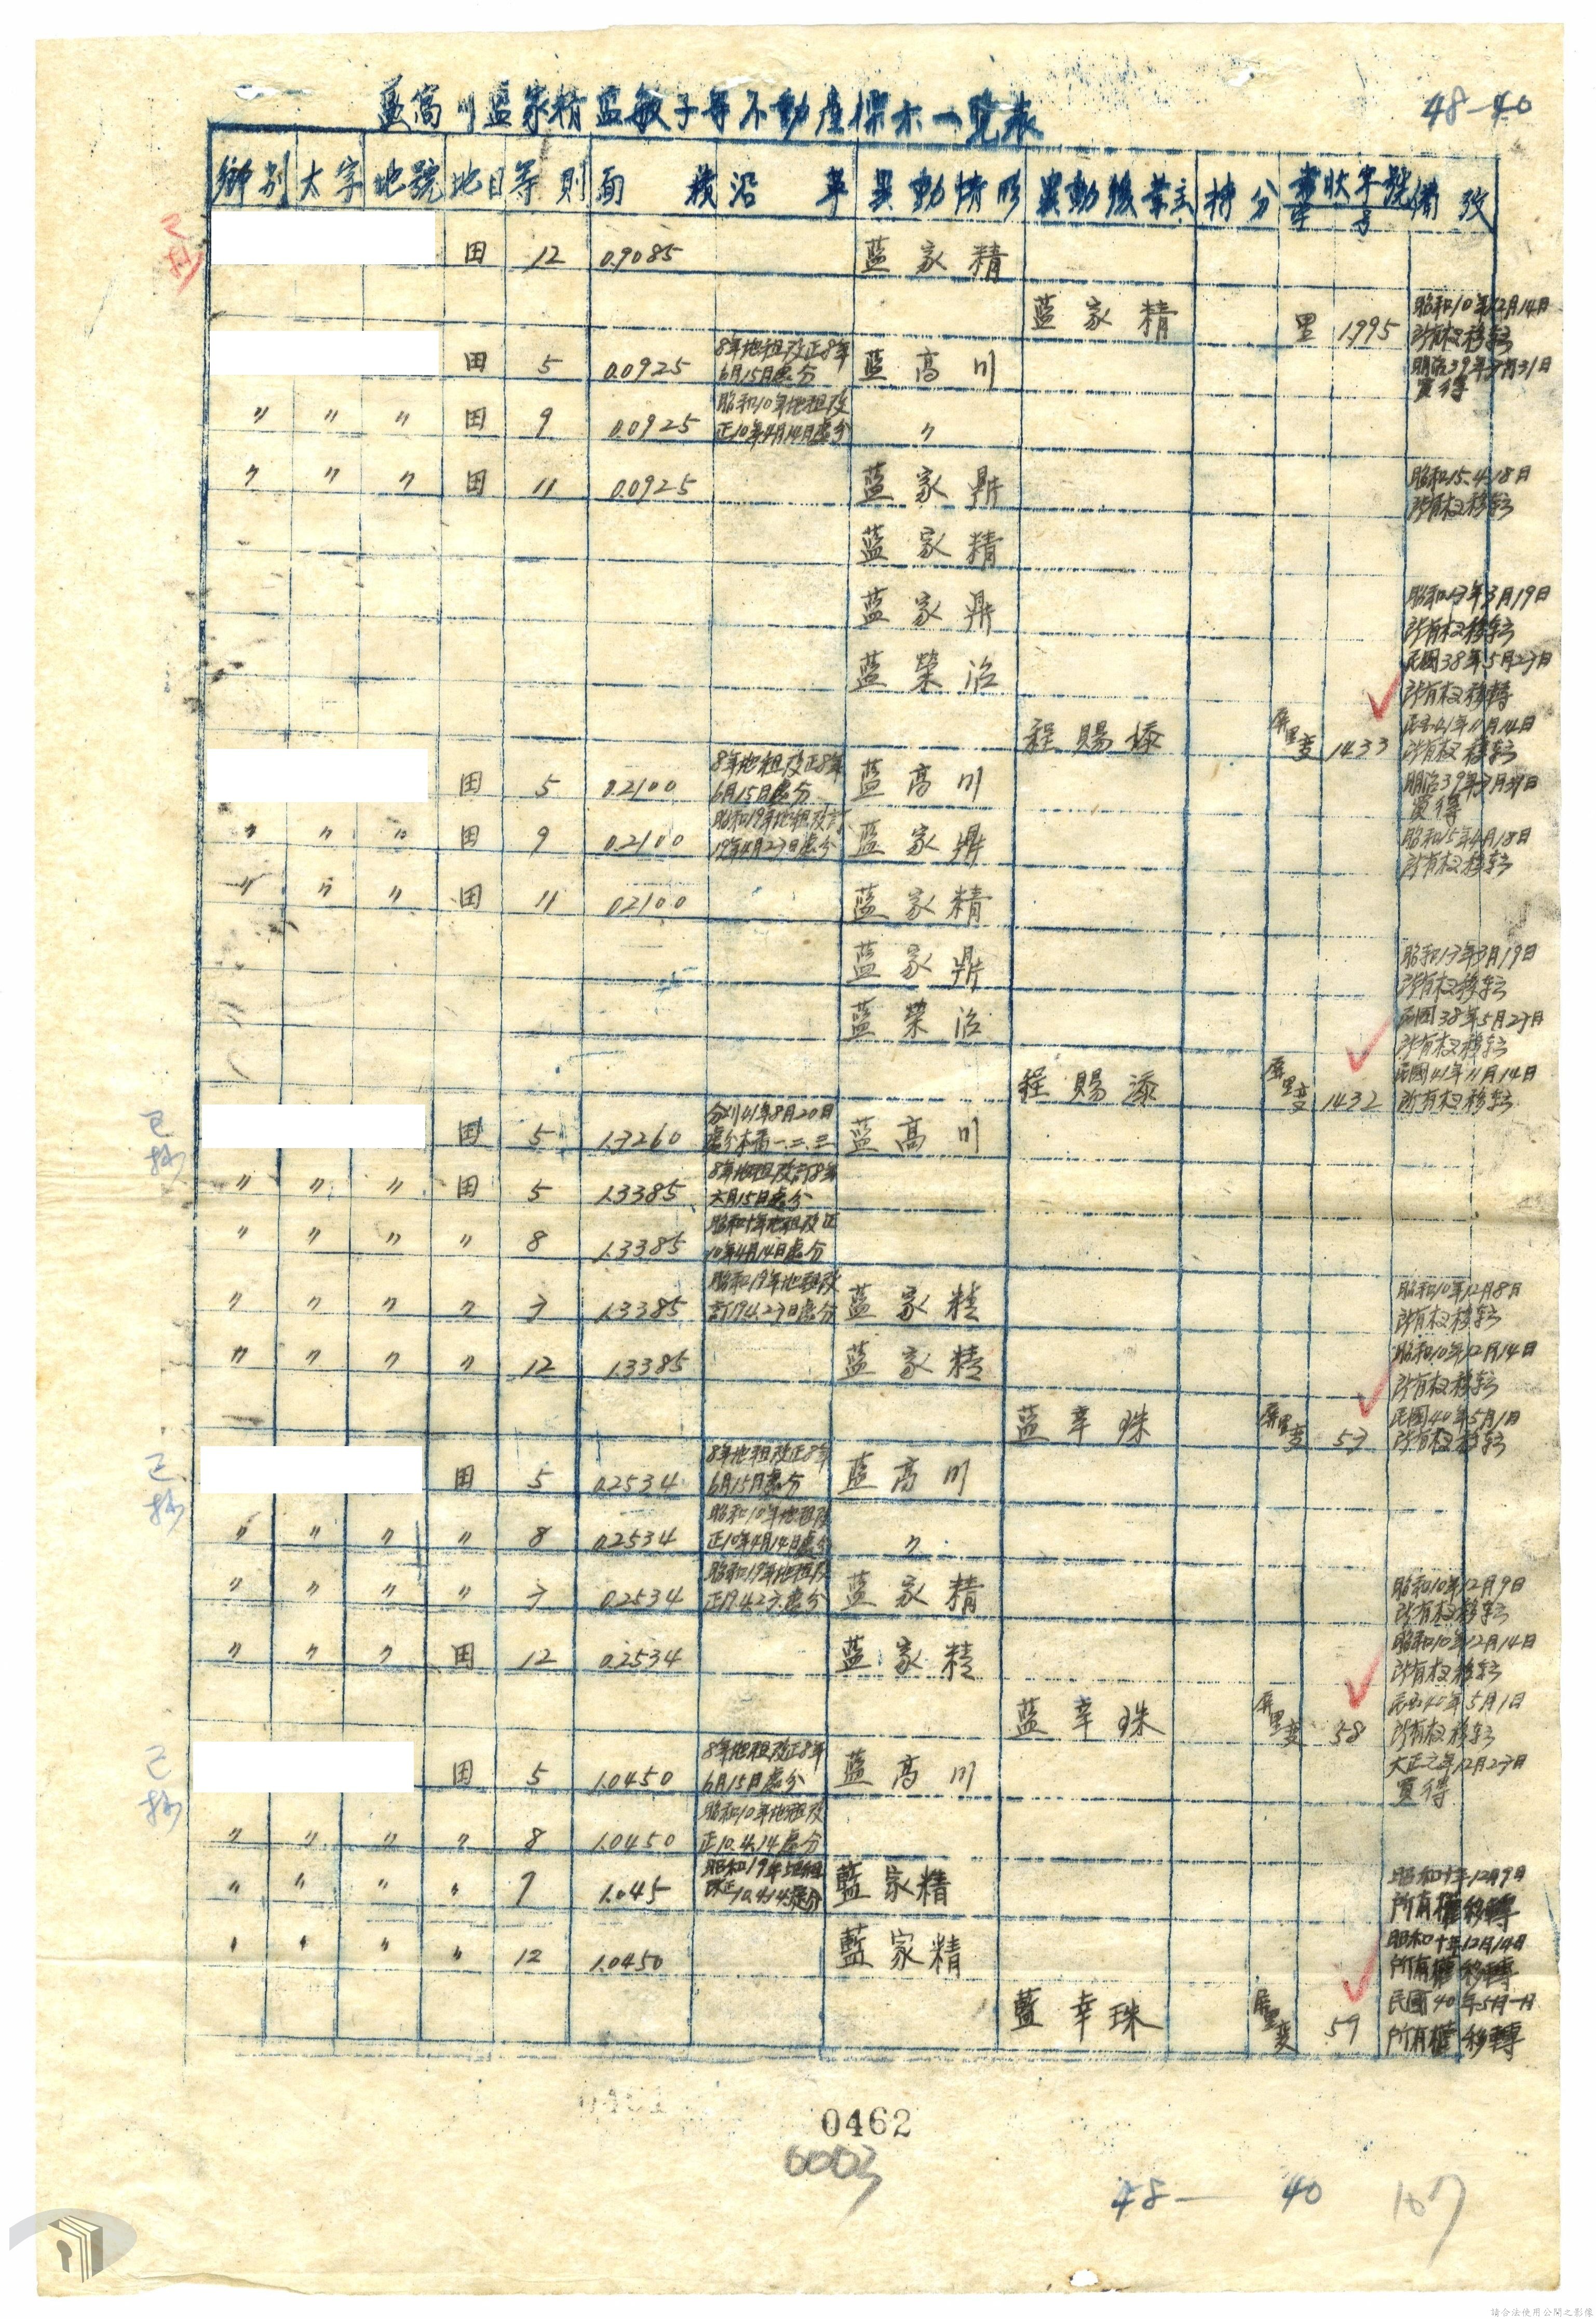 48-40
藍高川藍家精藍敏子等不動產標示一覽表
鄉別 大字 地號 地目 等則 面積 沿革 異動情形 異動後業主 持分 書狀字號 備攷
已抄
田 12 0.9085 藍家精
藍家精 里 1995 昭和10年12月14日所有权移転
田 5 0.0925 8年地租改正8年6月15日處分 藍高川 明治39年7月31日買得
〃 〃 〃 田 9 0.0925 昭和10年地租改正10年4月14日處分 〃
〃 〃 〃 田 11 0.0925 藍家鼎 昭和15.4.18日所有权移転
藍家精
藍家鼎 昭和17年3月19日所有权移転
藍榮治 民國38年5月27日所有权移轉
程賜添 屏里変 1433 民国41年11月14日所有权移転
田 5 0.2100 8年地租改正8年6月15日處分 藍高川 明治39年7月31日買得
〃 〃 〃 田 9 0.2100 昭和19年地租改訂19年4月27日處分 藍家鼎 昭和15年4月18日所有权移転
〃 〃 〃 田 11 0.2100 藍家精
藍家鼎 昭和17年3月19日所有权移転
藍榮治 民國38年5月27日所有权移転
程賜添 屏里変 1432 民國41年11月14日所有权移転
已抄
田 5 1.3260 分刈41年8月20日處分本番一.二.三 藍高川
〃 〃 〃 田 5 1.3385 8年地租改訂8年六月15日處分
〃 〃 〃 〃 8 1.3385 昭和十年地租改正10年4月14日處分
〃 〃 〃 〃 7 1.3385 昭和19年地租改訂19.4.27日處分 藍家精 昭和10年12月8日所有权移転
〃 〃 〃 〃 12 1.3385 藍家精 昭和10年12月14日所有权移転
藍幸珠 屏里変 57 民國40年5月1日所有权移転
已抄
田 5 0.2534 8年地租改正8年6月15日處分 藍高川
〃 〃 〃 〃 8 0.2534 昭和10年地租改正10年4月14日處分 〃
〃 〃 〃 〃 7 0.2534 昭和19年地租改正19.4.27.處分 藍家精 昭和10年12月9日所有权移転
〃 〃 〃 田 12 0.2534 藍家精 昭和10年12月14日所有权移転
藍幸珠 屏里変 58 民国40年5月1日所有权移転
已抄
田 5 1.0450 8年地租改正8年6月15日處分 藍高川 大正元年12月27日買得
〃 〃 〃 〃 8 1.0450 昭和10年地租改正10.4.14處分
〃 〃 〃 〃 7 1.045 昭和19年地租改正10.4.14處分 藍家精 昭和十年12月9日所有權移轉
〃 〃 〃 〃 12 1.0450 藍家精 昭和十年12月14日所有權移轉
藍幸珠 屏里変 59 民國40年5月一日所有權移轉
0462
0003
48—40 107
請合法使用公開之影像